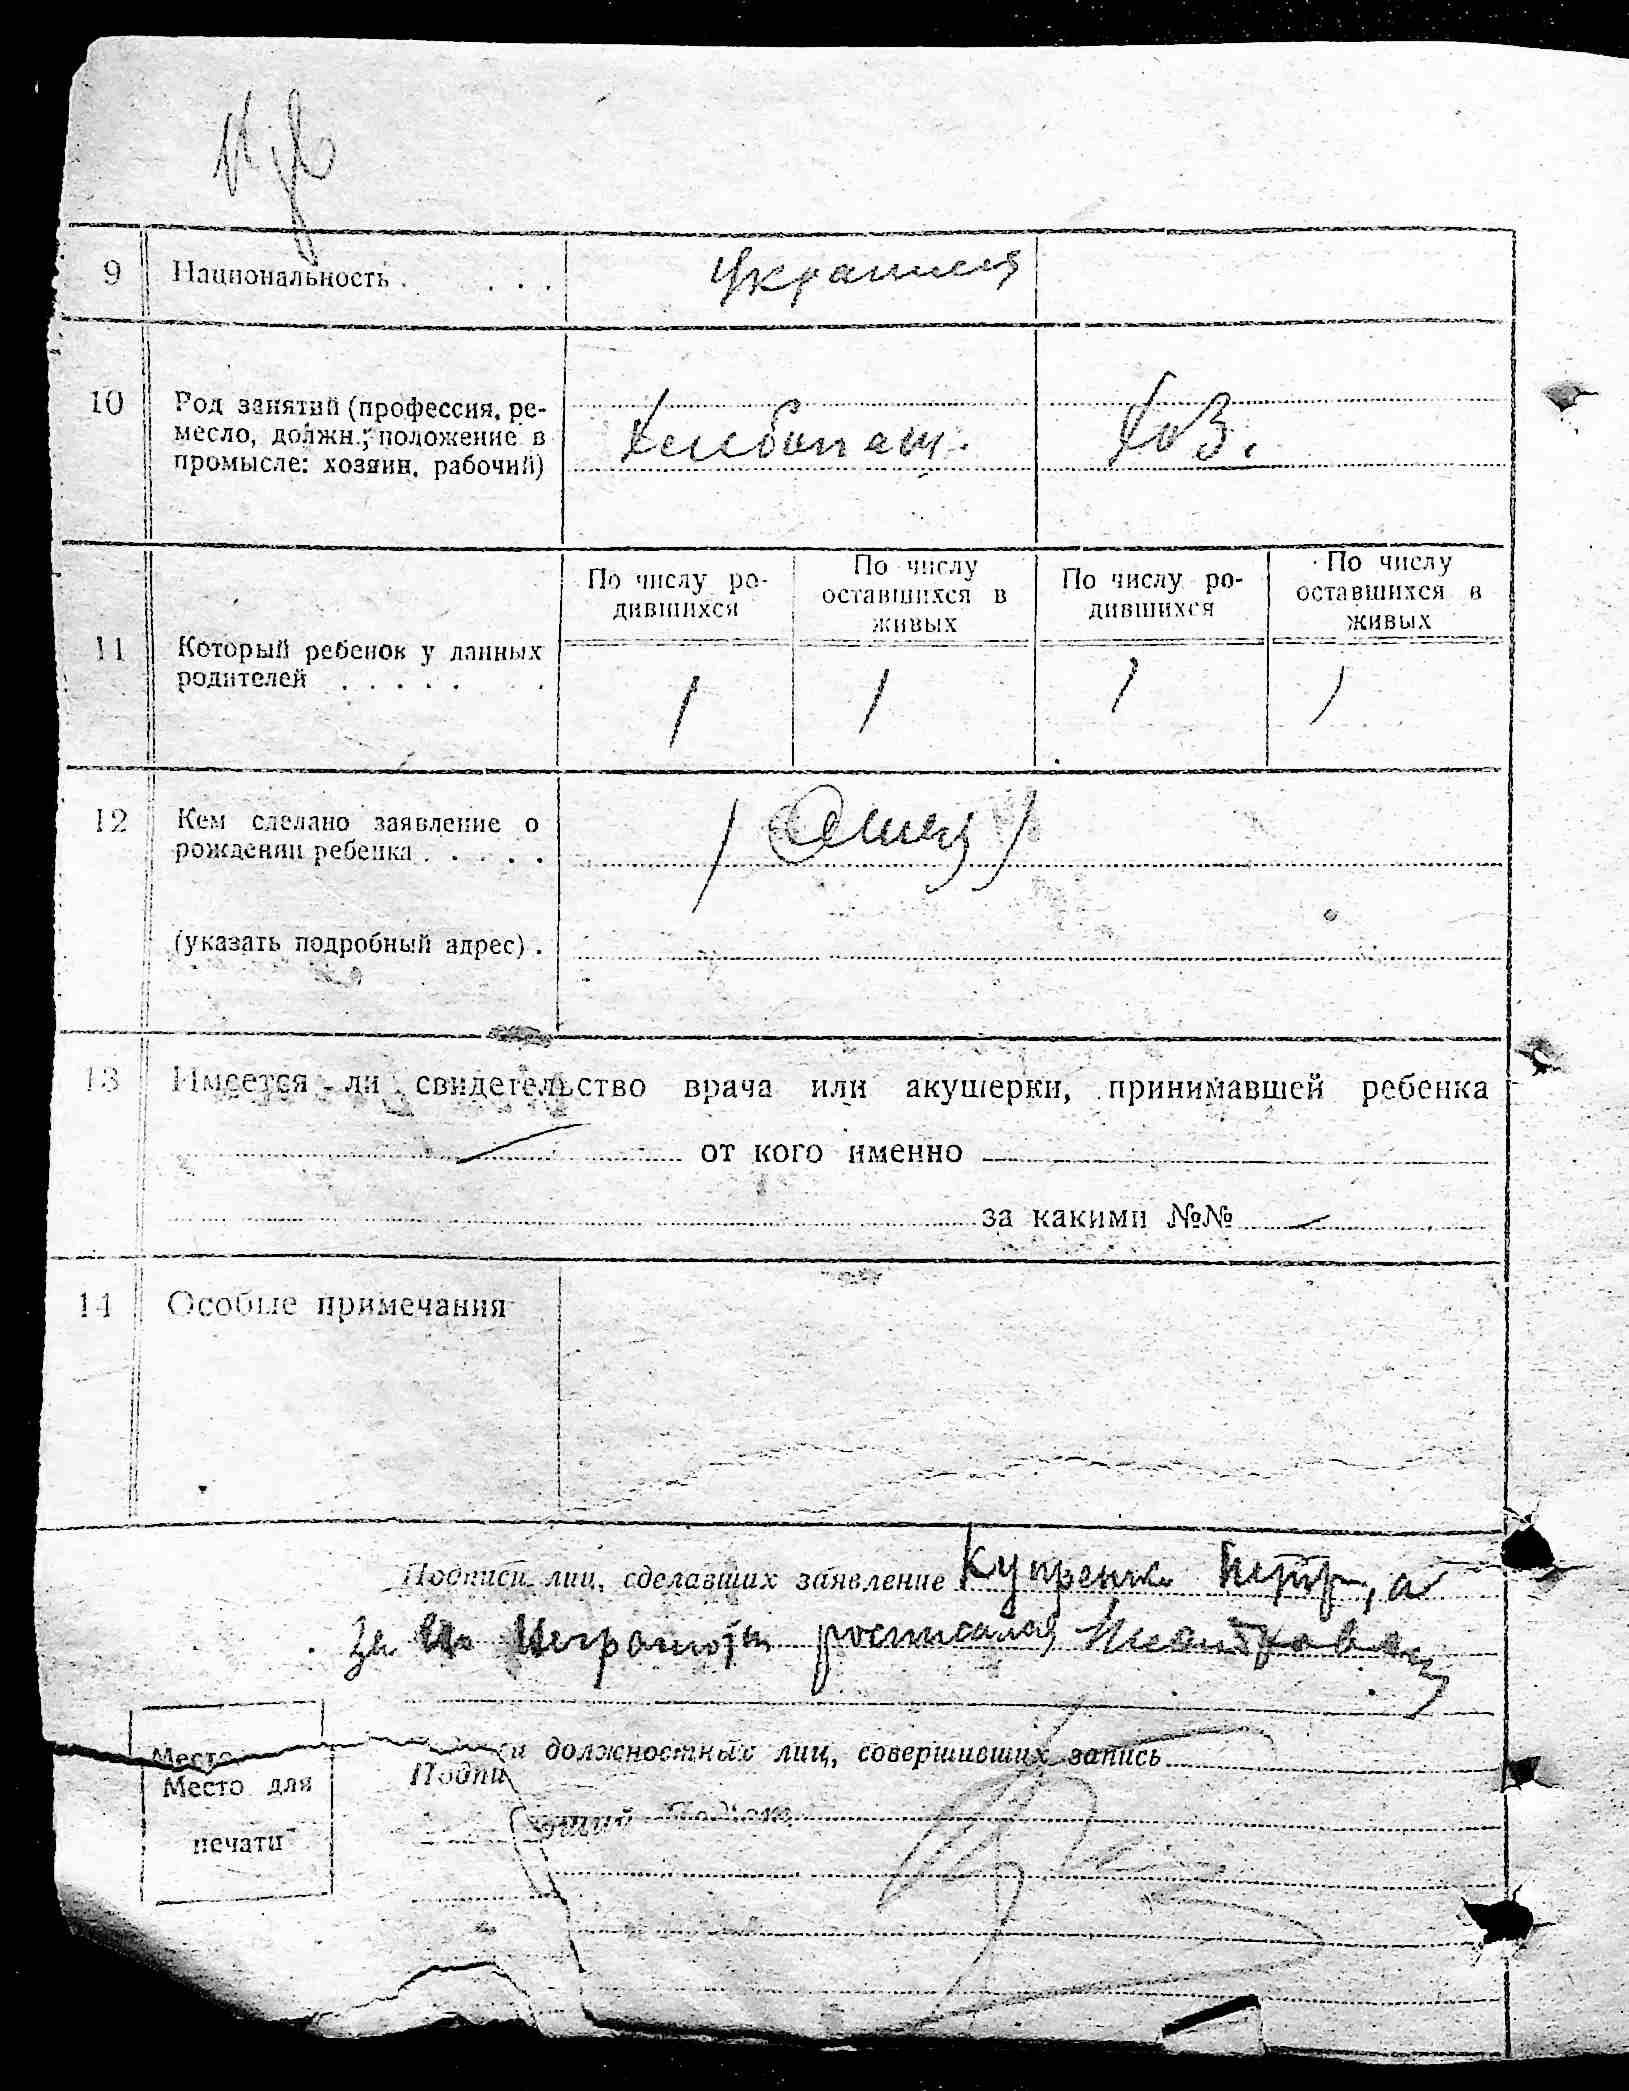 9 Национальность . . . . украинцы
10 Род занятий (профессия, ре-
месло, должн.; положение в
промысле: хозяин, рабочий)
Хлебопаш. хоз.
11 Который ребенок у данных
родителей . . . . . . .
По числу ро-
дившихся
По числу
оставшихся в
живых
По числу ро-
дившихся
По числу
оставшихся в
живых
1 1 1 1
12 Кем сделано заявление о
рождении ребенка . . . . .
/ Отец /
(указать подробный адрес) .
13 Имеется ли свидетельство врача или акушерки, принимавшей ребенка
от кого именно
за какими №№
14 Особые примечания
Подписи лиц, сделавших заявление Купренко Петр, а
за его неграмотн росписалая
Место
Место для
печати
Подписи должностных лиц, совершивших запись